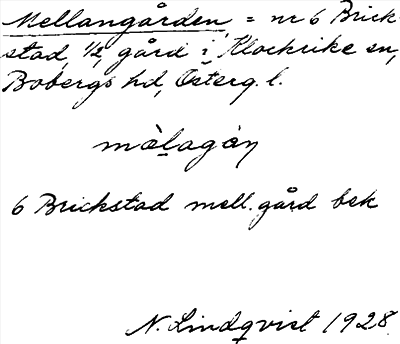 Mellangården = nr 6 Brick-
stad, 1/2 gård i Klockrike sn,
Bobergs hd, Österg. l.
mà̀lagàṇ
6 Brickstad mell. gård bek
N. Lindqvist 1928.